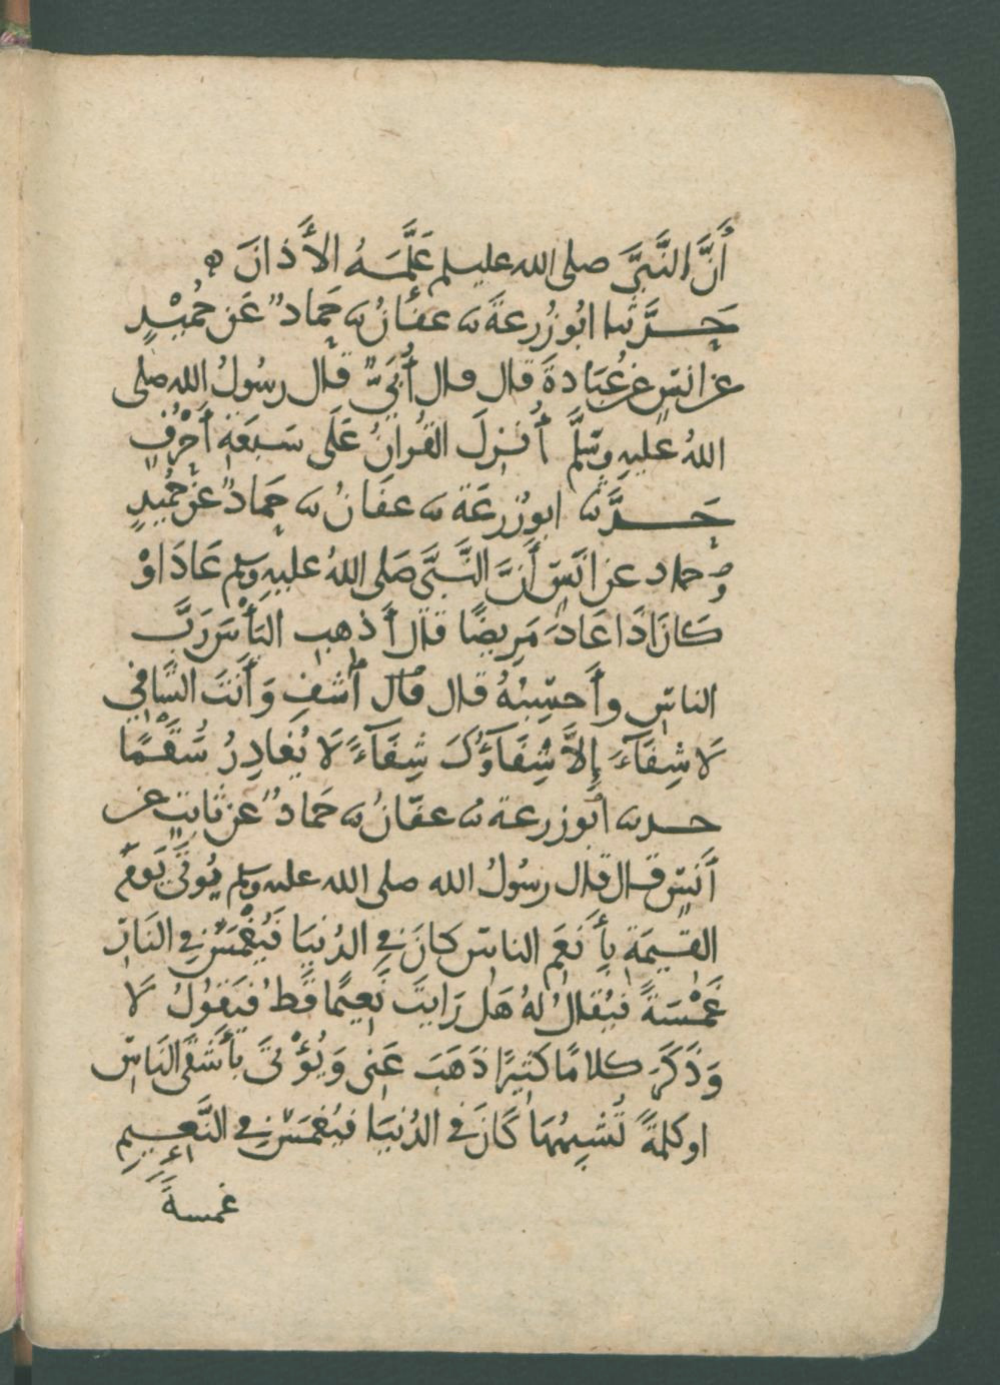 أَنَّ النَّبِيَّ صلى الله عليه وسلم عَلَّمَهُ الأَذانَ ه
حَدَّثنا ابُو زُرعَةَ نا عفانُ نا حَمادٌ عَن حُمَيْدٍ
عن انسٍ عن عُبَادةَ قال قال أُبَيٌّ قال رسُولُ الله صلى
اللهُ عليهِ وسَلَّم أُنزِلَ القُرانُ عَلَى سَبعَةِ أَحْرُفٍ
حَدَّثنا ابو زُرعَة نا عفَانُ نا حَمادٌ عن حُميدٍ
وحماد عن انَسٍ أَنَّ النَّبيَّ صَلى اللهُ عليهِ وسلم عَادَ اوْ
كَانَ اذَا عَادَ مَرِيضًا قال أَذهِب البَأْسَ رَبَّ
الناسِ وأَحسِبُهُ قال قال أشفِ وَأَنتَ الشَّافِي
لَا شِفَآءَ إِلاَّ شِفَآؤُكَ شِفَآءً لَا يُغادِرُ سَقَمًا
حدثنا ابُو زرعة نا عفّانُ نا حَمادٌ عن ثابتٍ عن
أَنَسٍ قال قال رسُولُ الله صلى الله عليه وسلم يُوتَى يَومَ
القيمَةِ بِأَنعَمِ الناسِ كانَ في الدُنيَا فَيُغْمَسُ في النَارِ
غَمْسَةً فيُقالُ لهُ هَل رَايتَ نَعِيمًا قَطُ فيَقُولُ لَا
وَذَكَرَ كلامًا كَثيرًا ذَهَبَ عَنى وَيُؤْتَى بأَشقَى النَاسِ
او كلمةً تُشبِهُهَا كَانَ في الدُنيَا فيُغمَسُ في النَّعِيمِ
غمسةً